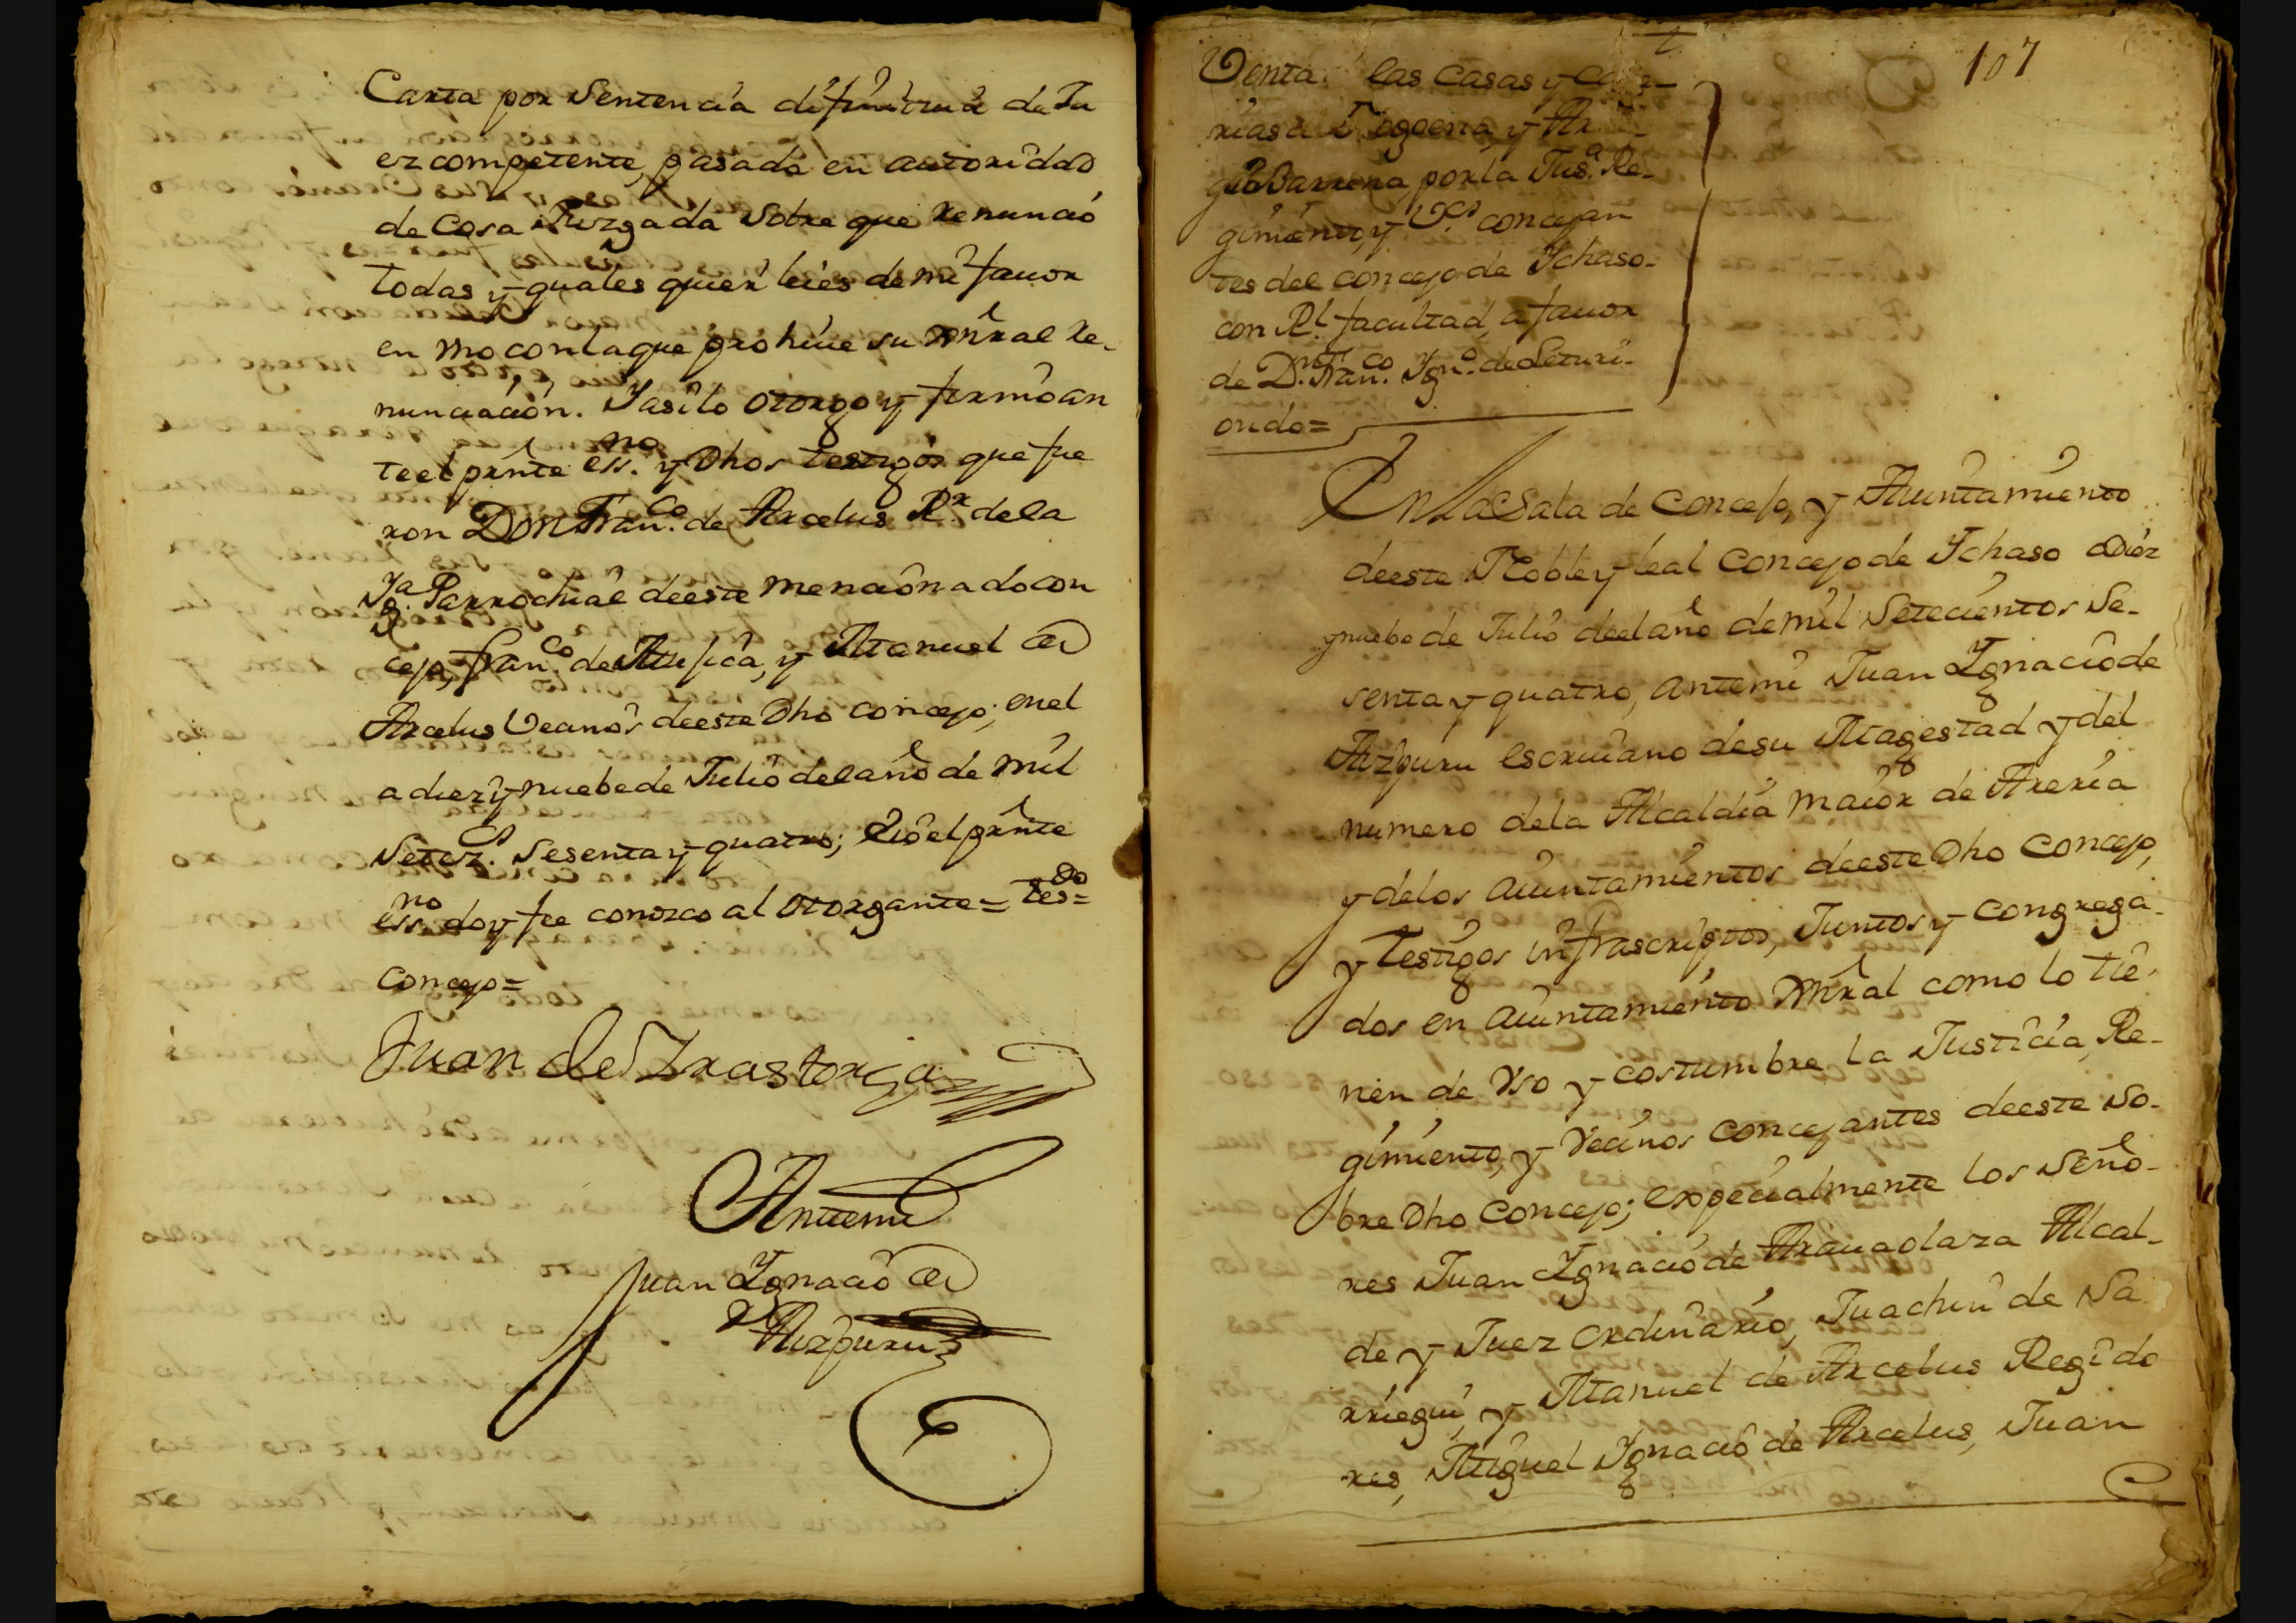 Carta por Sentencia difinitiua de Ju
ez competente, pasada en autoridad
de Cosa Juzgada Sobre que renunció
todas y quales quier leies de mi fauor
en Vno con la que prohiue su Gñral Re-
nunciación. Yasilo otorgo y firmo an
te el prnte essno. y Dhos testigos que fue
ron Don Franco. de Arcelus Rr. de la
Yga. Parrochiâl de este mencionado con
cejo, Franco. de Mujica, y Manuel de
Arcelus Vecinos de este Dho concejo; en el
a diez y nuebe de Julio del año de Mil
Setezs. Sesenta y quatro; e Yo el prnte
essno. doy fee conozco al otorgante= tesdo=
concejo=
Juan de Yrastorza
Antemi
Juan Ygnacio de
Aizpuru
107
Venta las Casas y Case-
rias de Ygoena, y Ar
guiBarrena por la Jusa. Re-
gimiento, y Vos. concejan
tes del concejo de Ychaso-
con Rl. facultad, a fauor
de Dn. Franco. Ygno. de Leturi-
ondo=
En la Sala de Concejo, y Aiuntamiento
de este Noble y leal Concejo de Ychaso a Diéz
y nuebe de Julio de el año de mil Setecientos Se-
senta y quatro, antemi Juan Ygnacio de
Aizpuru escriuano de su Magestad y del
numero de la Alcaldia maior de Areria
y de los aiuntamientos de este Dho Concejo,
y testigos infrascriptos, Juntos y Congrega-
dos en aiuntamiento Gñral como lo tie-
nen de Vso y costumbre la Justicia, Re-
gimiento, y Vecinos concejantes de este No-
bre Dho Concejo; expecialmente los Seño-
res Juan Ygnacio de Arauaolaza Alcal-
de y Juez ordinario, Juachin de Sa
rriegui, y Manuel de Arcelus Regido
res, Miguel Ygnacio de Arcelus, Juan